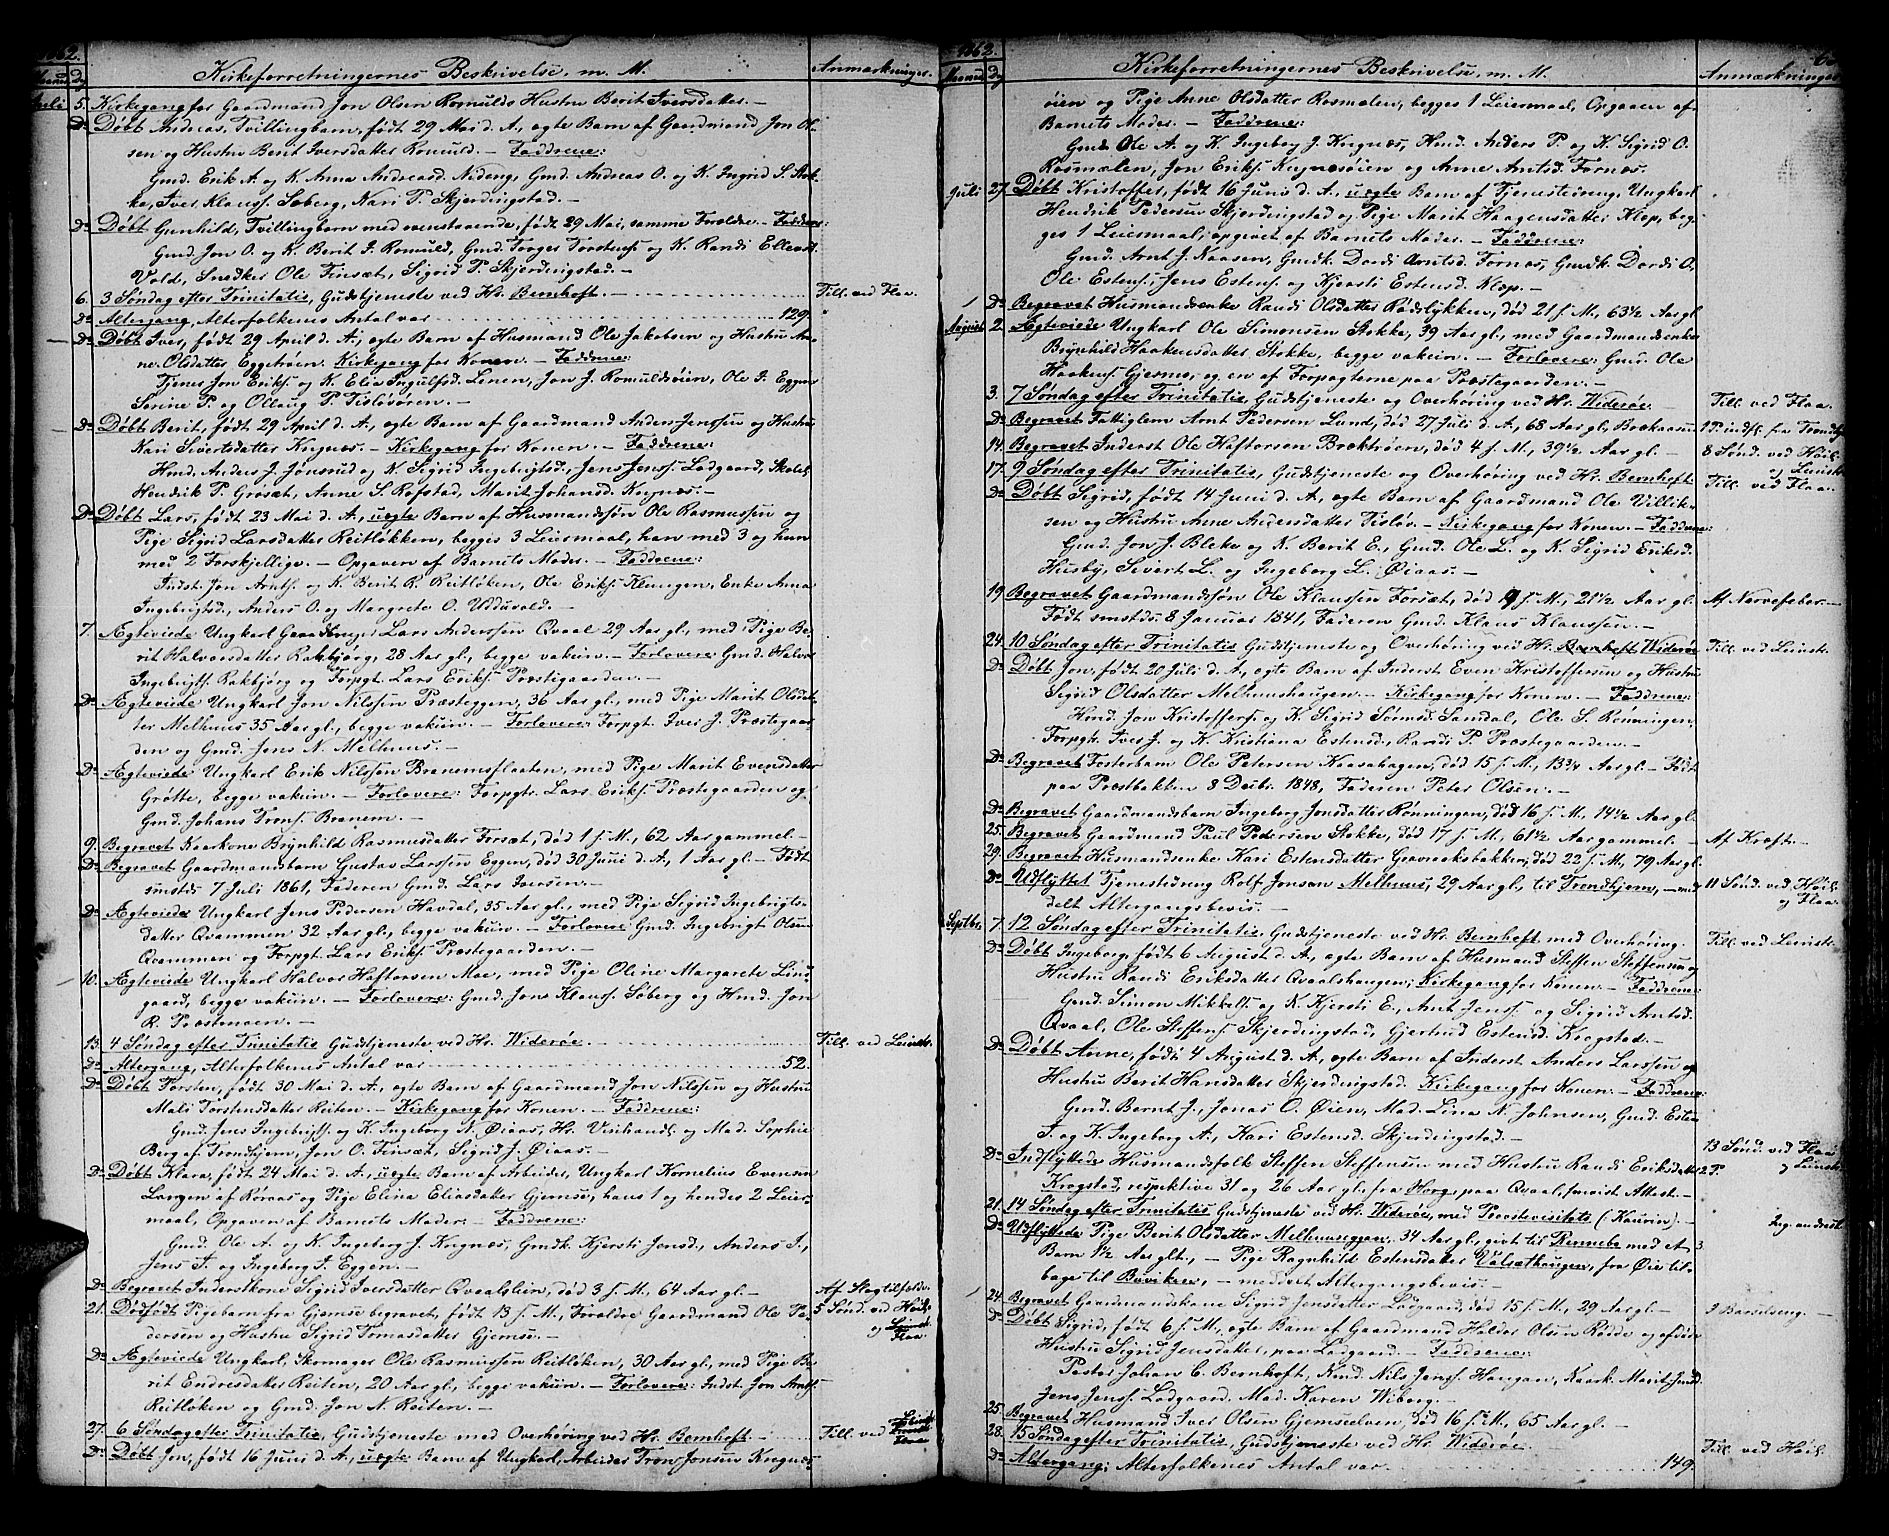 1862.
Kirkeforretningernes Beskrivelse, m. M.
Anmærkninger.
Juli 5. Kirkegang for Gaardmand Jon Olsen Romulds Hustru Berit Iversdatter. —
Do Døbt Andreas, Tvillingbarn, født 29 Mai d. A., ægte Barn af Gaardmand Jon Ol-
sen og Hustru Berit Iversdatter Romuld. — Faddrene:
Gmd. Erik A. og K. Anna Andreasd. Nideng, Gmd. Andreas O. og K. Ingrid S. Stok-
ke, Iver Klauss. Søberg, Mari P. Skjerdingstad. —
Do Døbt Gunhild, Tvillingbarn med ovenstaaende, født 29 Mai, samme Forældre. — Faddrene:
Gmd. Jon O. og K. Berit I. Romuld, Gmd. Torger Torstens. og K. Randi Ellevsd.
Vold, Snedker Ole Finsæt, Sigrid P. Skjerdingstad. —
6. 3 Søndag efter Trinitatis, Gudstjeneste ved Hr. Bernhoft. — Till. ved Flaa.
Do Altergang, Alterfolkenes Antal var 129.
Do Døbt Iver, født 29 April d. A., ægte Barn af Husmand Ole Jakobsen og Hustru An-
ne Olsdatter Eggetrøen. Kirkegang for Konen. — Faddrene:
Tjener Jon Eriks. og K. Elia Ingulfsd. Lenen, Jon J. Romuldsøien, Ole I. Eggen
Serine P. og Ollaug P. Tisløvøren. —
Do Døbt Berit, født 29 April d. A., ægte Barn af Gaardmand Anders Jenssen og Hustru
Kari Sivertsdatter Kregnes. — Kirkegang for Konen. — Faddrene:
Hmd. Anders J. Jønsrud og K. Sigrid Ingebrigtsd., Jens Jenss. Ladgaard, Skolel.
Hendrik P. Grøsæt, Anne S. Rofstad, Marit Johansd. Kregnes. —
Do Døbt Lars, født 23 Mai d. A., uægte Barn af Husmandssøn Ole Rasmussen og
Pige Sigrid Larsdatter Reitløkken, begges 3 Leiermaal, han med 3 og hun
med 2 Forskjellige. — Opgaven af Barnets Moder. — Faddrene:
Indst. Jon Arnts. og K. Berit R. Reitløken, Ole Eriks. Klungen, Enke Anna
Ingebrigtsd., Anders O. og Margrete O. Udduvold. —
7. Ægteviede Ungkarl Gaardbruger Lars Anderssen Qvaal 29 Aar gl., med Pige Be-
rit Halvorsdatter Rakbjørg, 28 Aar gl., begge vakcin. — Forlovere Gmd. Halvor
Ingebrigts. Rakbjørg og Forpgt. Lars Eriks. Præstegaarden. —
Do Ægteviede Ungkarl Jon Nilssen Præsteggen, 36 Aar gl., med Pige Marit Olsdat-
ter Melhuus 35 Aar gl., begge vakcin. — Forlovere: Forpgt. Iver J. Præstegaar-
den og Gmd. Jens N. Melhuus. —
Do Ægteviede Ungkarl Erik Nilssen Branemsflaaten, med Pige Marit Evensdatter
Grøtte, begge vakcin. — Forlovere: Forpgtr. Lars Eriks. Præstegaarden og
Gmd. Johans Trons. Branem. —
9. Begravet Kaarkone Brynhild Rasmusdatter Forsæt, død 1 s. M., 62 Aar gammel. —
Do Begravet Gaardmandsbarn Gustav Larssen Eggen, død 30 Juni d. A., 1 Aar gl. — Født
smstds 7 Juli 1861, Faderen Gmd. Lars Iversen. —
Do Ægteviede Ungkarl Jens Pedersen Havdal, 35 Aar gl., med Pige Sigrid Ingebrigts-
datter Qvammen 32 Aar gl., begge vakcin. — Forlovere Gmd. Ingebrigt Olsen
Qvammen og Forpgt. Lars Eriks. Præstegaarden. —
10. Ægteviede Ungkarl Halvor Haftorsen Moe, med Pige Oline Margarete Lind-
gaard, begge vakcin. — Forlovere: Gmd. Jens Klauss. Søberg og Hmd. Jon
R. Præstmoen. —
13. 4 Søndag efter Trinitatis Gudstjeneste ved Hr. Widerøe. Till. ved Leinstr.
Do Altergang, Alterfolkenes Antal var 52.
Do Døbt Torsten, født 30 Mai d. A., ægte Barn af Gaardmand Jon Nilssen og Hustru
Mali Torstensdatter Reiten. — Kirkegang for Konen. — Faddrene:
Gmd. Jens Ingebrigts. og K. Ingeborg N. Øiaas, Hr. Vinhandl. og Mad. Sophie
Berg af Trondhjem, Jon O. Finsæt, Sigrid J. Øiaas. —
Do Døbt Klara, født 24 Mai d. A., uægte Barn af Arbeider, Ungkarl Kornelius Evensen
Langen af Røraas og Pige Elena Eliasdatter Gjemse, hans 1 og hendes 2 Leier-
maal, Opgaven af Barnets Moder. — Faddrene:
Gmd. Ole A. og K. Ingeborg J. Kregnes, Gmdk. Kjersti Jensd., Anders I.,
Jens I. og Ingeborg I. Eggen. —
Do Begravet Inderstkone Sigrid Iversdatter Qvaalslien, død 3 s. M., 64 Aar gl. — Af Slagtilfælde.
21. Dødfødt Pigebarn fra Gjemse begravet, født 13 s. M., Forældre Gaardmand Ole Pe- 5 Sønd. ved Høil.
dersen og Hustru Sigrid Tomasdatter Gjemse. — og Flaa.
Do Ægteviede Ungkarl, Skomager Ole Rasmussen Reitløken, 30 Aar gl., med Pige Be-
rit Endresdatter Reiten, 20 Aar gl., begge vakcin. — Forlovere: Indst. Jon Arnts.
Reitløken og Gmd. Jon N. Reiten. —
27. 6 Søndag efter Trinitatis, Gudstjeneste med Overhøring ved Hr. Bernhoft. — Till. ved Leinstr.
Do Døbt Jon, født 16 Juni d. A., uægte Barn af Ungkarl, Arbeider Tron Jonsen Kregnes-
1862.
Kirkeforretningernes Beskrivelse, m. M.
Anmærkninger
øien og Pige Anne Olsdatter Rosmælen, begges 1 Leiermaal, Opgaven af
Barnets Moder. — Faddrene:
Gmd. Ole A. og K. Ingeborg J. Kregnes, Hmd. Anders P. og K. Sigrid O.
Rosmælen, Jon Eriks. Kregnesøien og Anne Arntsd. Fornes.
Juli 27. Døbt Kristoffer, født 16 Juni d. A., uægte Barn af Tjenestedreng, Ungkarl
Hendrik Pedersen Skjerdingstad og Pige Marit Haagensdatter Klep, beg-
ges 1 Leiermaal, opgivet af Barnets Moder. — Faddrene:
Gmd. Arnt J. Kaasen, Gmdk. Dordi Arntsd. Fornes, Gmdk. Dordi O.,
Ole Estens., Jens Estens. og Kjersti Estensd. Klæp. —
Do Begravet Husmandsenke Randi Olsdatter Rødslykken, død 21 s. M., 63½ Aar gl.
August 2. Ægteviede Ungkarl Ole Simonsen Stokke, 39 Aar gl., med Gaardmandsenke
Brynhild Haakensdatter Stokke, begge vakcin. — Forlovere: Gmd. Ole
Haakens. Gjemse, og en af Forpagterne paa Præstegaarden. —
3. 7 Søndag efter Trinitatis, Gudstjeneste og Overhøring ved Hr. Widerøe. Till. ved Flaa.
Do Begravet Fattiglem Arnt Pedersen Lund, død 27 Juli d. A., 68 Aar gl., Brækaasen
14. Begravet Inderst Ole Haftorsen Bræktrøen, død 4 s. M., 39½ Aar gl. — 8 Sønd. ved Høil.
17. 9 Søndag efter Trinitatis, Gudstjeneste og Overhøring ved Hr. Bernhoft. Till. ved Flaa.
Do Døbt Sigrid, født 14 Juni d. A., ægte Barn af Gaardmand Ole Villik-
sen og Hustru Anne Andersdatter Tisløv. — Kirkegang for Konen. — Faddrene:
Gmd. Jon J. Bleke og K. Berit E., Gmd. Ole L. og K. Sigrid Eriksd.
Husby, Sivert L. og Ingeborg L. Øiaas. —
19. Begravet Gaardmandssøn Ole Klaussen Forsæt, død 9 s. M., 21½ Aar gl. Af Nervefeber. —
Født smstds. 8 Januar 1841, Faderen Gmd. Klaus Klaussen. —
24. 10 Søndag efter Trinitatis Gudstjeneste og Overhøring ved Hr. Bernhoft Widerøe Till. ved Leinstr.
Do Døbt Jon, født 20 Juli d. A., ægte Barn af Inderst Even Kristoffersen og Hustru
Sigrid Olsdatter Melhuushaugen. — Kirkegang for Konen. — Faddrene:
Hmd. Jon Kristoffers. og K. Sigrid Sørensd. Sandal, Ole S. Rønningen,
Forpgtr. Iver J. og K. Kristiana Estensd., Randi P. Præstegaarden. —
Do Begravet Fosterbarn Ole Petersen Kaasahagen, død 15 s. M., 13¾ Aar gl. — Født
paa Præstbakken 8 Decbr. 1848, Faderen Peter Olsen. —
Do Begravet Gaardmandsbarn Ingeborg Jonsdatter Rønningen, død 16 s. M., 14½ Aar gl.
25. Begravet Gaardmand Paul Pedersen Stokke, død 17 s. M., 61½ Aar gammel. — Af Kræft. —
29. Begravet Husmandsenke Kari Estensdatter Gravraaksbakken, død 22 s. M., 79 Aar gl.
Do Udflyttet Tjenestedreng Rolf Jonsen Melhuus, 29 Aar gl., til Trondhjem, — med 11 Sønd. ved Høil.
delt Altergangsbevis. — og Flaa.
Septbr. 7. 12 Søndag efter Trinitatis, Gudstjeneste ved Hr. Bernhoft med Overhøring. Till. ved Leinstr.
Do Døbt Ingeborg, født 6 August d. A., ægte Barn af Husmand Steffen Steffensen og
Hustru Randi Eriksdatter Qvaalshaugen; Kirkegang for Konen. — Faddrene:
Gmd. Simon Mikkels. og K. Kjersti E., Arnt Jenss. og Sigrid Arntsd.
Qvaal, Ole Steffens. Skjerdingstad, Gjertrud Estensd. Krogstad. —
Do Døbt Anne, født 4 August d. A., ægte Barn af Inderst Anders Larssen og
Hustru Berit Hansdatter Skjerdingstad. Kirkegang for Konen. — Faddrene:
Gmd. Bernt J., Jonas O. Øien, Mad. Lina N. Johnsen, Gmd. Esten
T. og K. Ingeborg A., Kari Estensd. Skjerdingstad. —
13 Sønd. ved Flaa
og Leinstr.
Do Indflyttede Husmandsfolk Steffen Steffensen med Hustru Randi Eriksdatter 2 P.
Krogstad, respektive 31 og 26 Aar gl., fra Horg, paa Qvaal, forevist Attest. —
21. 14 Søndag efter Trinitatis Gudstjeneste ved Hr. Widerøe, med Provstevisitats (: Kaurin). — Ing. andensteds
Do Udflyttede Pige Berit Olsdatter Melhuuseggen, 34 Aar gl., givt til Rennebo med et 3.
Barn 1½ Aar glt., — Pige Ragnhild Estensdatter Valsethaugen, fra Øie til-
bage til Buviken, — medgivet Altergangsbevis. —
24. Begravet Gaardmandskone Sigrid Jensdatter Ladgaard, død 15 s. M., 29 Aar gl. — I Barselseng. —
Do Døbt Sigrid, født 6 s. M., ægte Barn af Gaardmand Haldor Olsen Rødde og afdøde
Hustru Sigrid Jensdatter, paa Ladgaard. — Faddrene:
Pastor Johan C. Bernhoft, Kmd. Nils Jenss. Haugan, Kaark. Marit Jensd.
Jens Jenss. Ladgaard, Mad. Karen Wiborg. —
25. Begravet Husmand Iver Olsen Gjemselven, død 16 s. M., 65 Aar gl.
28. 15 Søndag efter Trinitatis, Gudstjeneste ved Hr. Widerøe. Till. ved Høil.
Do Altergang; Alterfolkenes Antal var 149.